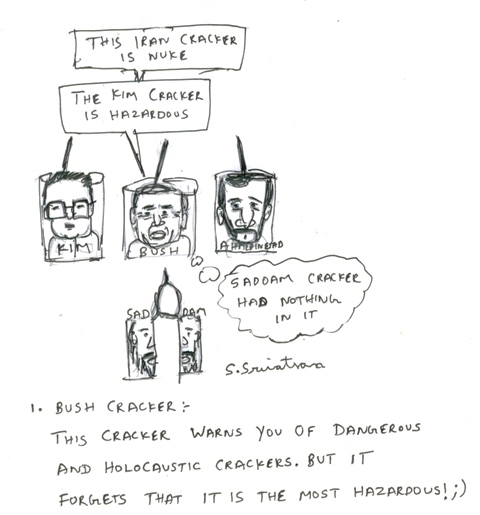 THIS IRAN CRACKER
IS NUKE
THE KIM CRACKER
IS HAZARDOUS
KIM
BUSH
AHMEDINEJAD
SADDAM CRACKER
HAD NOTHING
IN IT
SAD DAM
S.Srivatsava
1. BUSH CRACKER:-
THIS CRACKER WARNS YOU OF DANGEROUS
AND HOLOCAUSTIC CRACKERS. BUT IT
FORGETS THAT IT IS THE MOST HAZARDOUS!;)